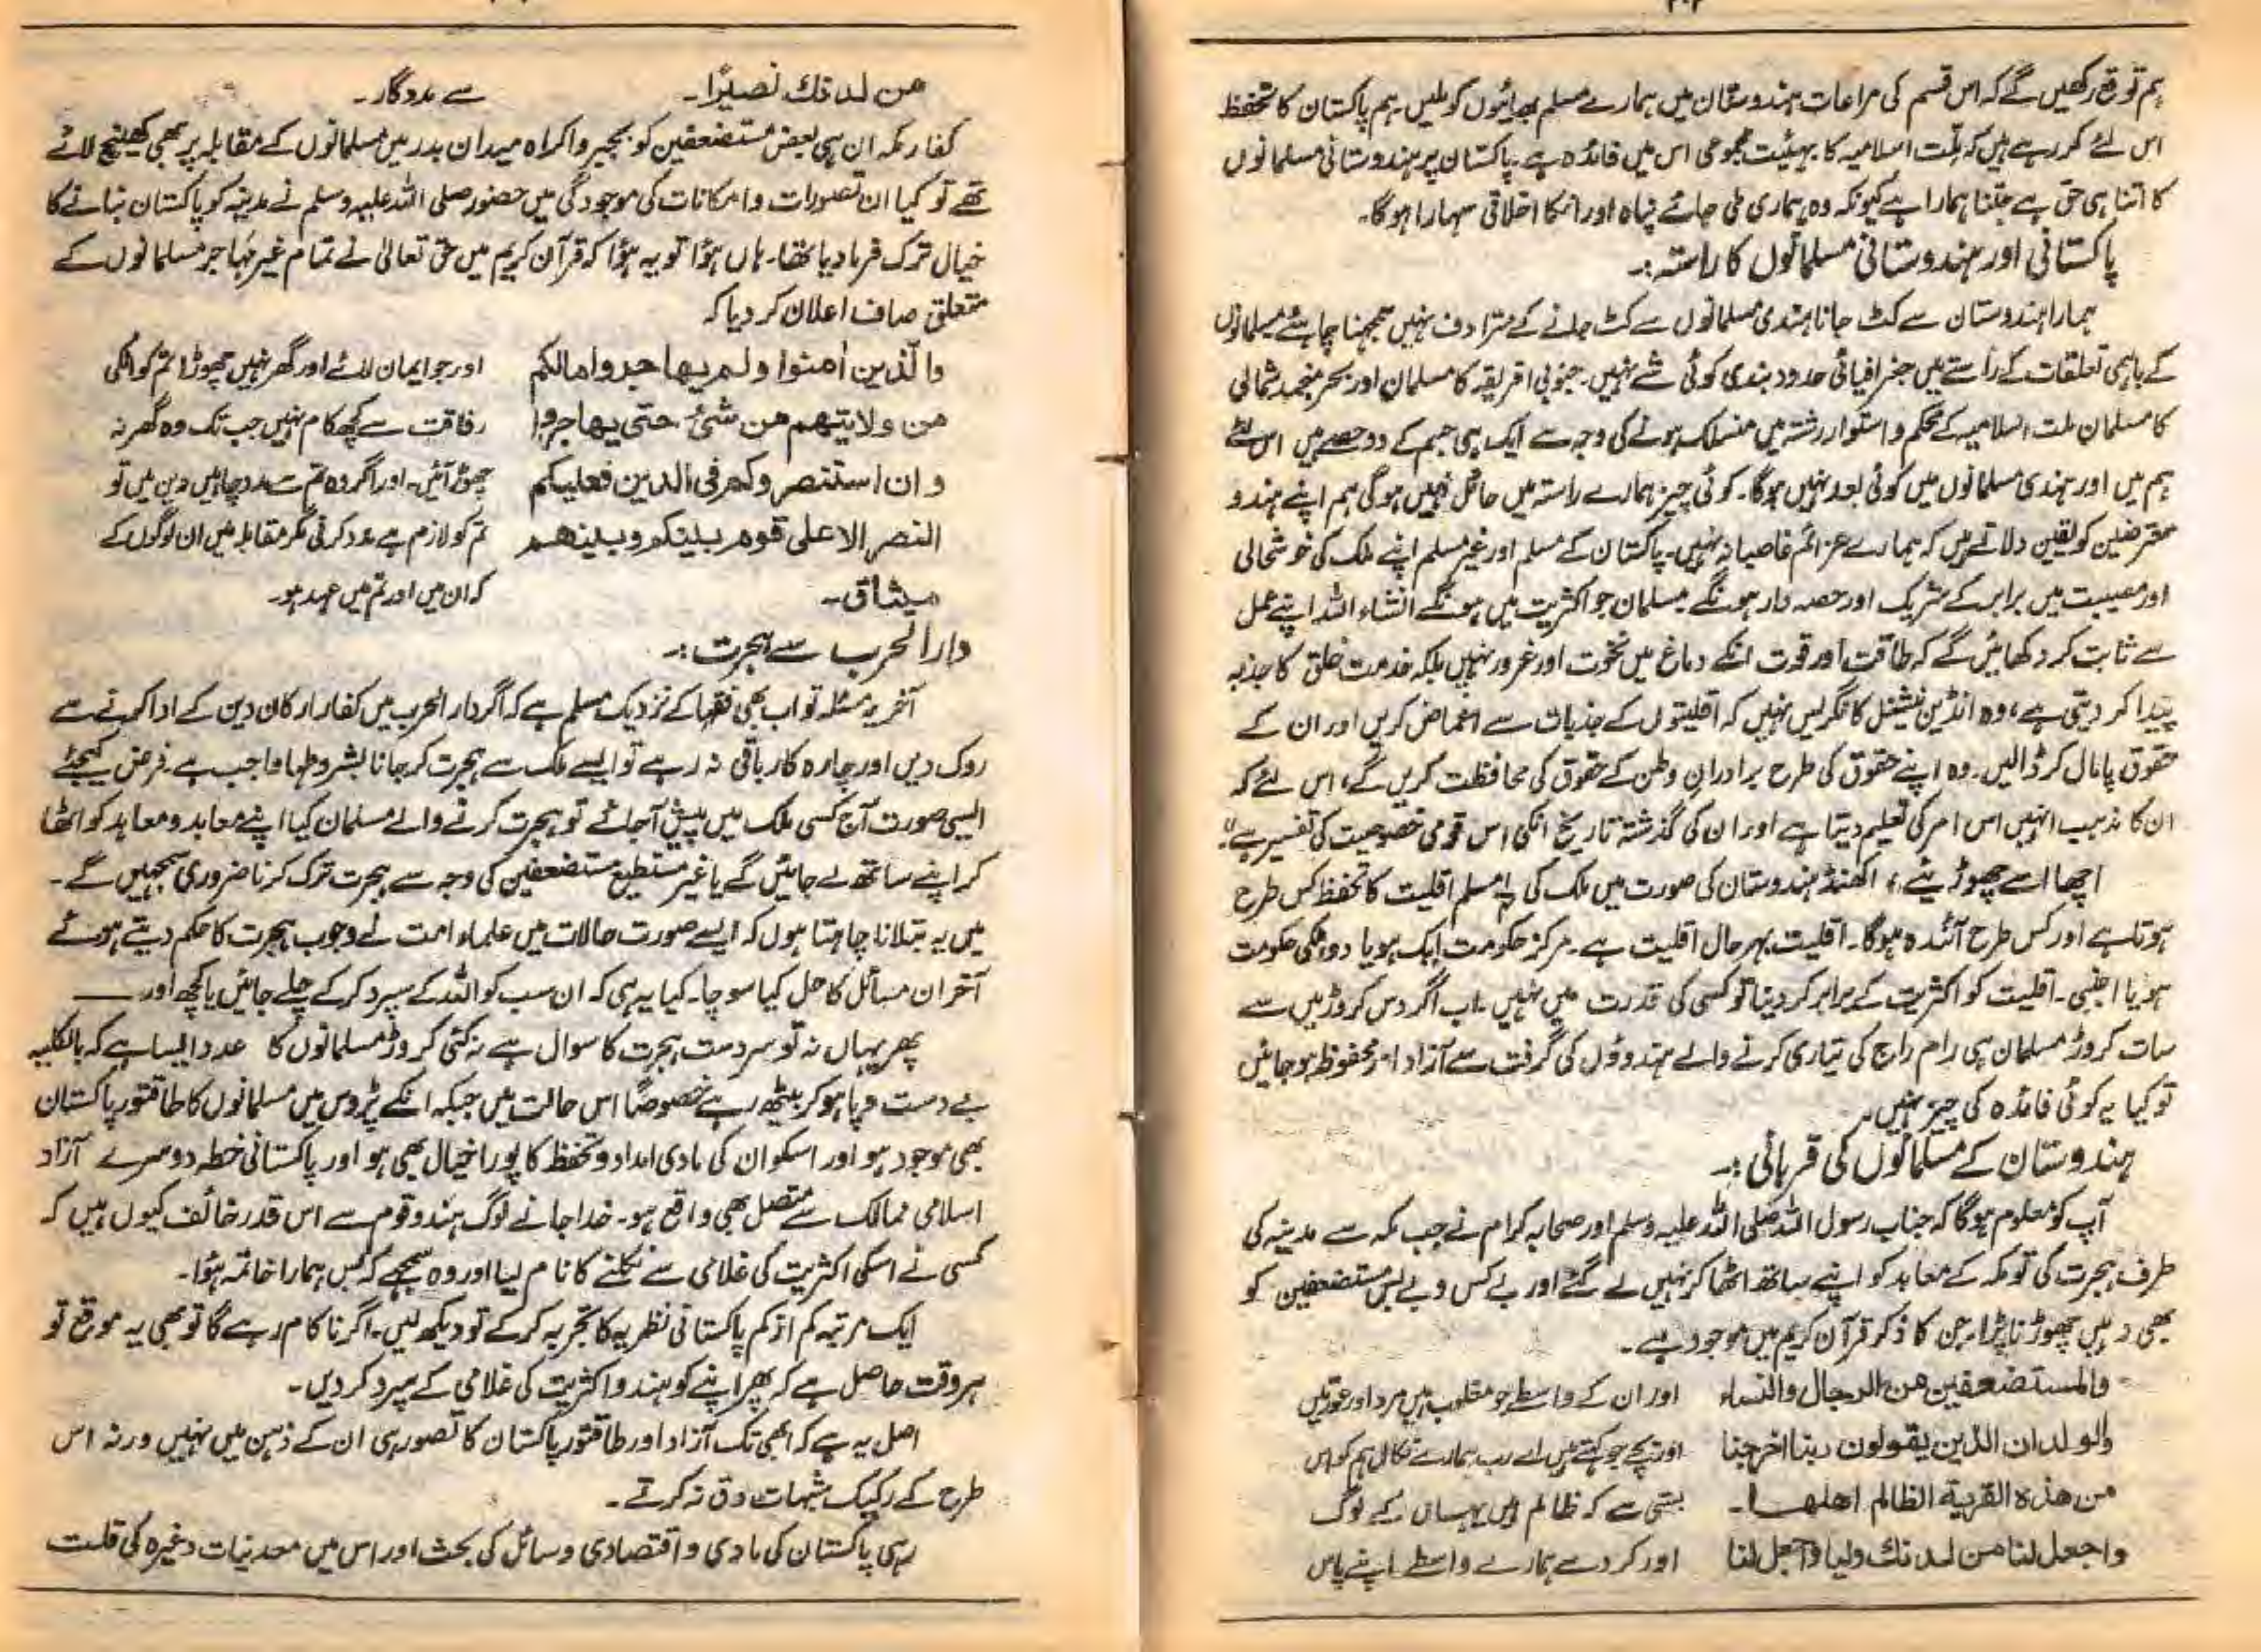 ہم توقع رکھیں گے کہ اس قسم کی مراعات ہندوستان میں ہمارے مسلم بھائیوں کو ملیں۔ ہم پاکستان کا تحفظ
اس لئے کر رہے ہیں کہ ملت اسلامیہ کا بہیئت مجموعی اس میں فائدہ ہے۔ پاکستان پر ہندوستانی مسلمانوں
کا اتنا ہی حق ہے جتنا ہمارا ہے کیونکہ وہ ہماری ملی جائے پناہ اور انکا اخلاقی سہارا ہوگا۔
پاکستانی اور ہندوستانی مسلمانوں کا راستہ:۔
ہمارا ہندوستان سے کٹ جانا ہندی مسلمانوں سے کٹ جانے کے مترادف نہیں سمجھنا چاہئے مسلمانوں
کے باہمی تعلقات کے راستے میں جغرافیائی حدود بندی کوئی شے نہیں۔ جنوبی افریقہ کا مسلمان اور بحر منجمد شمالی
کا مسلمان ملت اسلامیہ کے محکم و استوار رشتہ میں منسلک ہونے کی وجہ سے ایک ہی جسم کے دو حصے ہیں اس لئے
ہم میں اور ہندی مسلمانوں میں کوئی بعد نہیں ہوگا۔ کوئی چیز ہمارے راستہ میں حائل نہیں ہوگی ہم اپنے ہندو
معترضین کو یقین دلاتے ہیں کہ ہمارے عزائم غاصبانہ نہیں۔ پاکستان کے مسلم اور غیر مسلم اپنے ملک کی خوشحالی
اور مصیبت میں برابر کے شریک اور حصہ دار ہونگے مسلمان جو اکثریت میں ہونگے انشاء اللہ اپنے عمل
سے ثابت کر دکھائیں گے کہ طاقت اور قوت انکے دماغ میں نخوت اور غرور نہیں بلکہ خدمت خلق کا جذبہ
پیدا کر دیتی ہے، وہ انڈین نیشنل کانگریس نہیں کہ اقلیتوں کے جذبات سے اغماض کریں اور ان کے
حقوق پامال کر ڈالیں۔ وہ اپنے حقوق کی طرح برادران وطن کے حقوق کی محافظت کریں گے، اس لئے کہ
ان کا مذہب انہیں اس امر کی تعلیم دیتا ہے اور ان کی گذشتہ تاریخ انکی اس قومی خصوصیت کی تفسیر ہے"۔
اچھا اسے چھوڑیئے، اکھنڈ ہندوستان کی صورت میں ملک کی مسلم اقلیت کا تحفظ کس طرح
ہوتا ہے اور کس طرح آئندہ ہوگا۔ اقلیت بہرحال اقلیت ہے۔ مرکز حکومت ایک ہو یا دو، ملکی حکومت
ہو یا اجنبی۔ اقلیت کو اکثریت کے برابر کر دینا تو کسی کی قدرت میں نہیں۔ اب اگر دس کروڑ میں سے
سات کروڑ مسلمان ہی رام راج کی تیاری کرنے والے ہندوؤں کی گرفت سے آزاد اور محفوظ ہو جائیں
تو کیا یہ کوئی فائدہ کی چیز نہیں۔
ہندوستان کے مسلمانوں کی قربانی:۔
آپ کو معلوم ہوگا کہ جناب رسول اللہ صلی اللہ علیہ وسلم اور صحابہ کرام نے جب مکہ سے مدینہ کی
طرف ہجرت کی تو مکہ کے معابد کو اپنے ساتھ اٹھا کر نہیں لے گئے اور بے کس و بے بس مستضعفین کو
بھی وہیں چھوڑنا پڑا، جن کا ذکر قرآن کریم میں موجود ہے۔
والمستضعفین من الرجال والنساء اور ان کے واسطے جو مغلوب ہیں مرد اور عورتیں
والولدان الذین یقولون ربنا اخرجنا اور بچے جو کہتے ہیں اے رب ہمارے نکال ہم کو اس
من ھذہ القریۃ الظالم اھلھا۔ بستی سے کہ ظالم ہیں یہاں کے لوگ
واجعل لنا من لدنك ولیا واجعل لنا اور کر دے ہمارے واسطے اپنے پاس
من لدنك نصیرًا۔ سے مددگار۔
کفار مکہ ان ہی بعض مستضعفین کو بجبر و اکراہ میدان بدر میں مسلمانوں کے مقابلہ پر بھی کھینچ لائے
تھے تو کیا ان تصورات و امکانات کی موجودگی میں حضور صلی اللہ علیہ وسلم نے مدینہ کو پاکستان بنانے کا
خیال ترک فرما دیا تھا۔ ہاں ہؤا تو یہ ہؤا کہ قرآن کریم میں حق تعالیٰ نے تمام غیر مہاجر مسلمانوں کے
متعلق صاف اعلان کر دیا کہ
والذین اٰمنوا ولم یھاجروا مالکم اور جو ایمان لائے اور گھر نہیں چھوڑا تم کو انکی
من ولایتھم من شئ حتی یھاجروا رفاقت سے کچھ کام نہیں جب تک وہ گھر نہ
وان استنصروکم فی الدین فعلیکم چھوڑ آئیں۔ اور اگر وہ تم سے مدد چاہیں دین میں تو
النصر الا علی قوم بینکم وبینھم تم کو لازم ہے مدد کرنی مگر مقابلہ میں ان لوگوں کے
میثاق۔ کہ ان میں اور تم میں عہد ہو۔
دارالحرب سے ہجرت:۔
آخر یہ مسئلہ تو اب بھی فقہا کے نزدیک مسلم ہے کہ اگر دارالحرب میں کفار ارکان دین کے ادا کرنے سے
روک دیں اور چارہ کار باقی نہ رہے تو ایسے ملک سے ہجرت کر جانا بشروطہا واجب ہے۔ فرض کیجئے
ایسی صورت آج کسی ملک میں پیش آجائے تو ہجرت کرنے والے مسلمان کیا اپنے معابد و معاہد کو اٹھا
کر اپنے ساتھ لے جائیں گے یا غیر مستطیع مستضعفین کی وجہ سے ہجرت ترک کرنا ضروری سمجھیں گے۔
میں یہ بتلانا چاہتا ہوں کہ ایسے صورت حالات میں علماء امت نے وجوب ہجرت کا حکم دیتے ہوئے
آخر ان مسائل کا حل کیا سوچا۔ کیا یہ ہی کہ ان سب کو اللہ کے سپرد کر کے چلے جائیں یا کچھ اور ——
پھر یہاں نہ تو سردست ہجرت کا سوال ہے نہ کئی کروڑ مسلمانوں کا عدد ایسا ہے کہ بالکلیہ
بے دست و پا ہو کر بیٹھ رہے خصوصًا اس حالت میں جبکہ انکے پڑوس میں مسلمانوں کا طاقتور پاکستان
بھی موجود ہو اور اسکو ان کی مادی امداد و تحفظ کا پورا خیال بھی ہو اور پاکستانی خطہ دوسرے آزاد
اسلامی ممالک سے متصل بھی واقع ہو۔ خدا جانے لوگ ہندو قوم سے اس قدر خائف کیوں ہیں کہ
کسی نے اسکی اکثریت کی غلامی سے نکلنے کا نام لیا اور وہ سمجھے کہ بس ہمارا خاتمہ ہؤا۔
ایک مرتبہ کم از کم پاکستانی نظریہ کا تجربہ کر کے تو دیکھ لیں۔ اگر ناکام رہے گا تو بھی یہ موقع تو
ہر وقت حاصل ہے کہ پھر اپنے کو ہندو اکثریت کی غلامی کے سپرد کر دیں۔
اصل یہ ہے کہ ابھی تک آزاد اور طاقتور پاکستان کا تصور ہی ان کے ذہن میں نہیں ورنہ اس
طرح کے رکیک شبہات دق نہ کرتے۔
رہی پاکستان کی مادی و اقتصادی وسائل کی بحث اور اس میں معدنیات وغیرہ کی قلت